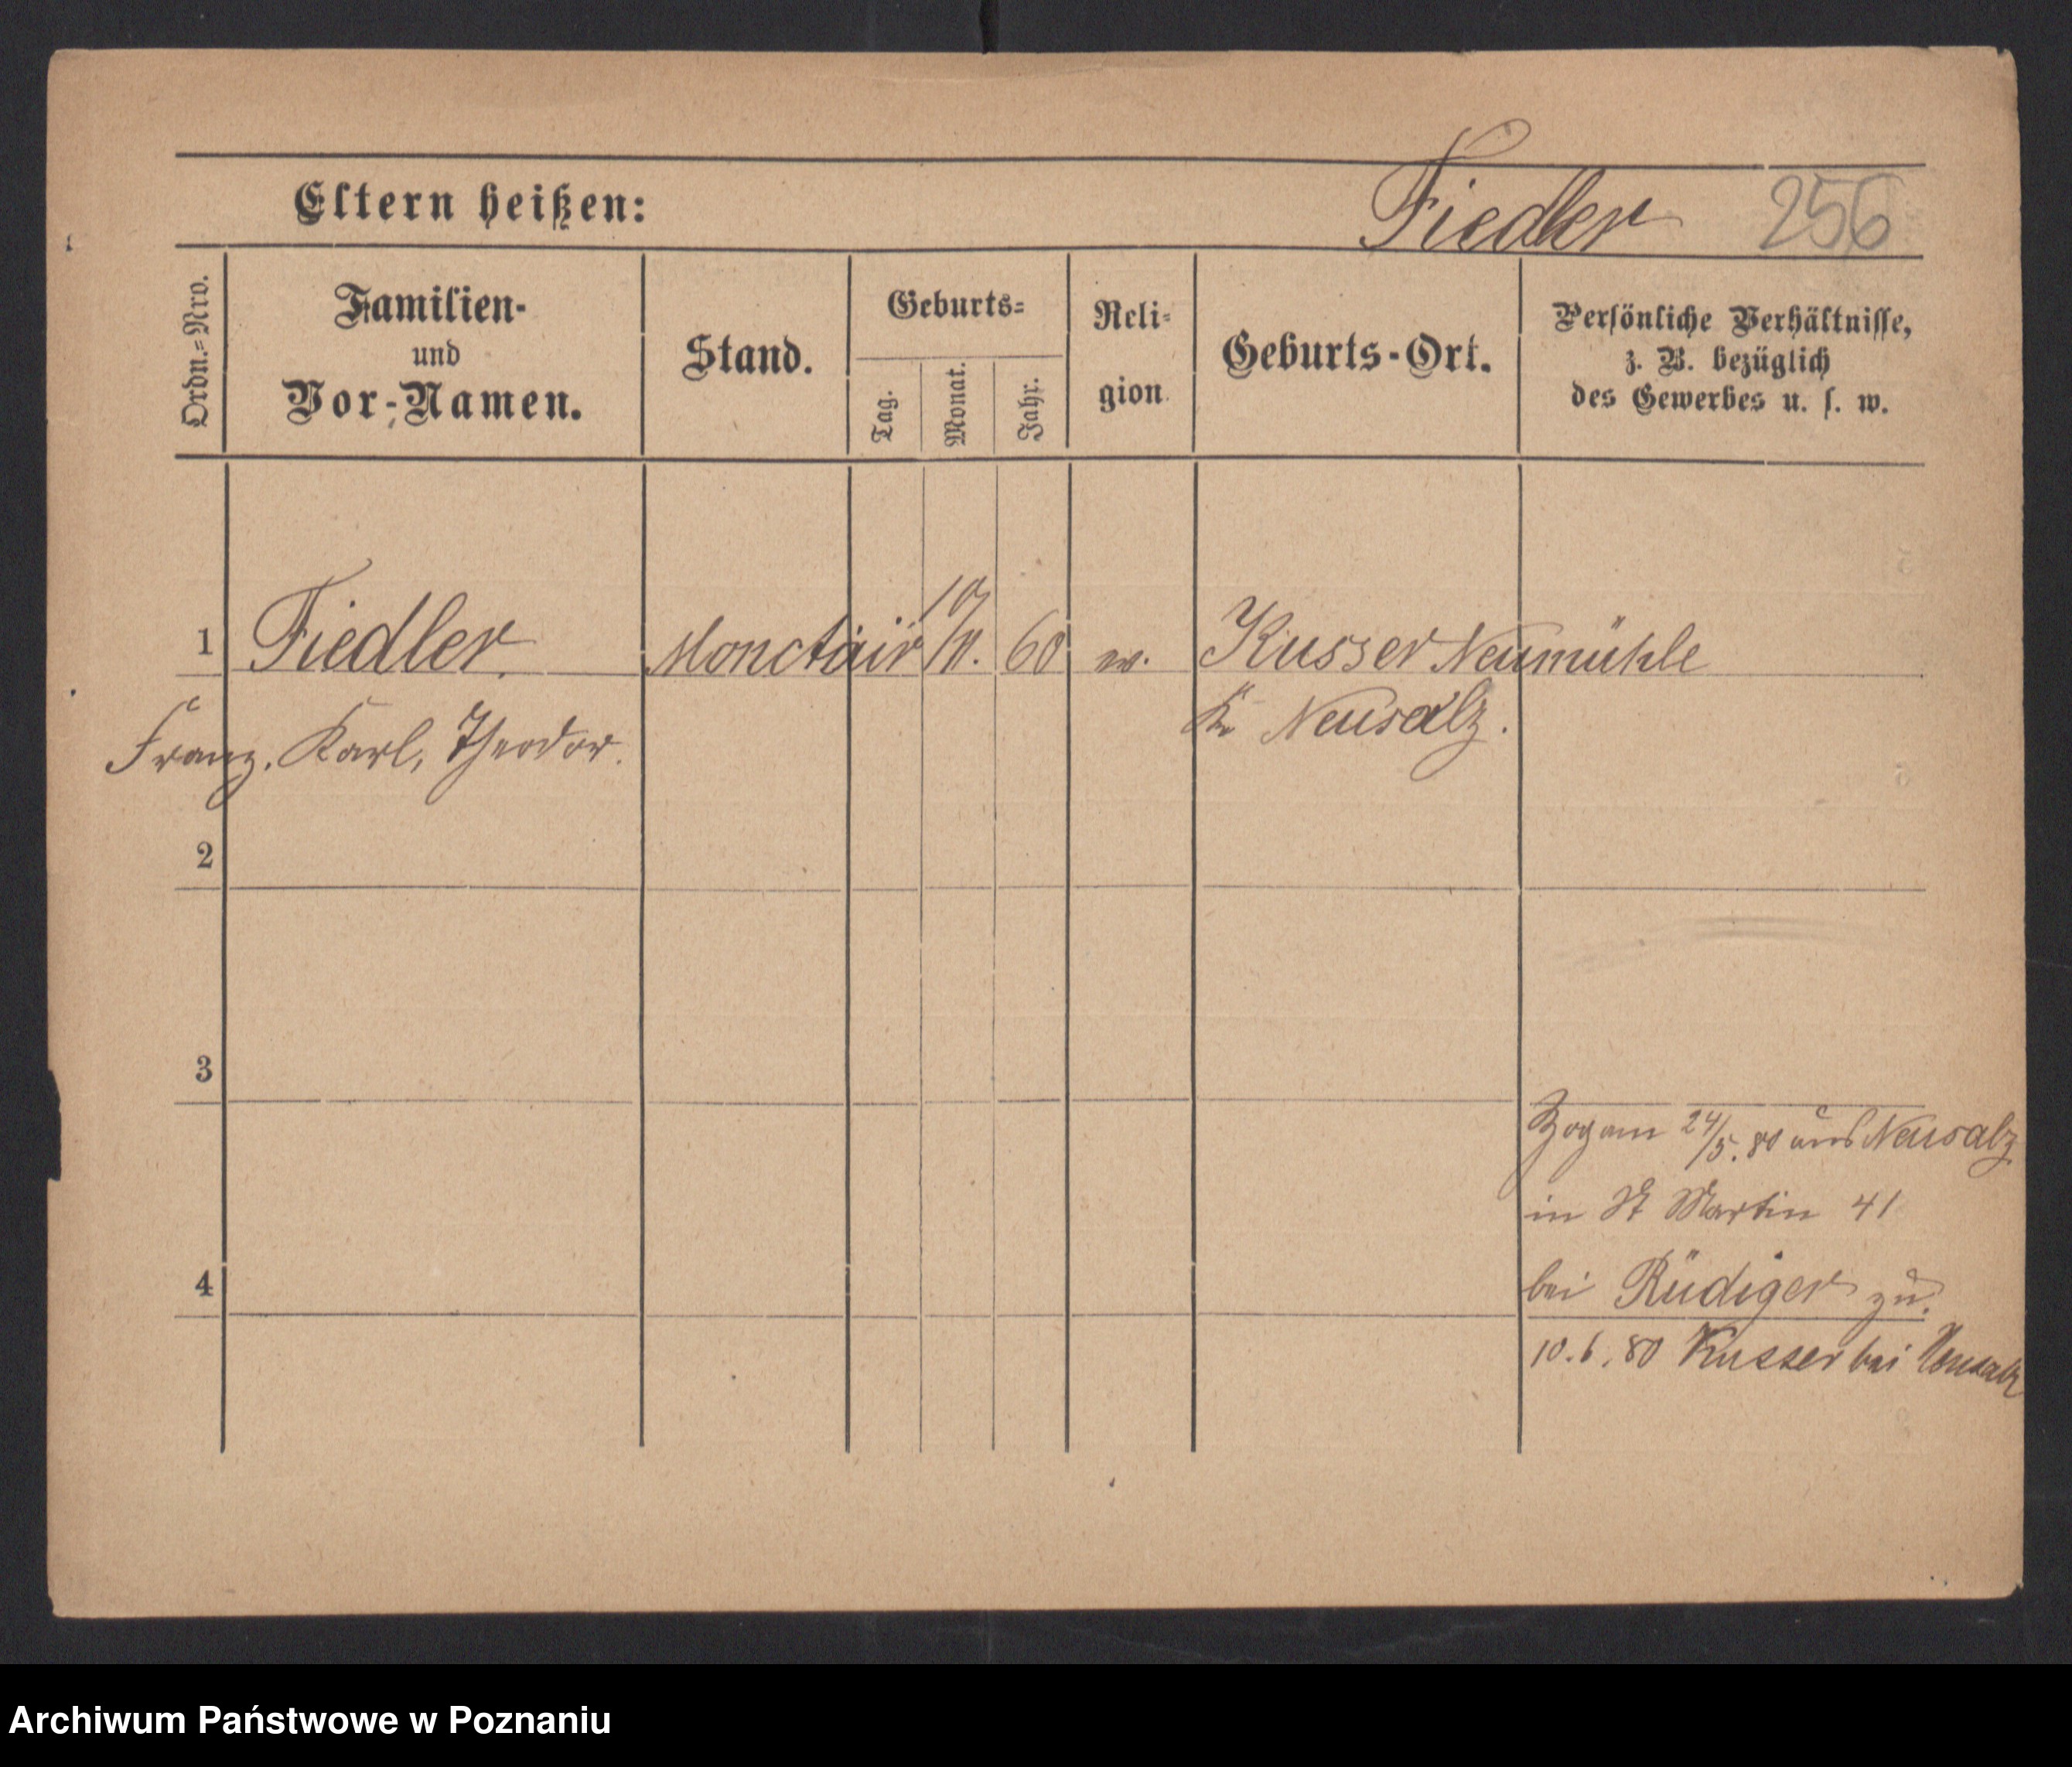 Eltern heißen: Fiedler 256
Ordn.=Nro.
Familien-
und
Vor-Namen.
Stand.
Geburts=
Tag.
Monat.
Jahr.
Reli=
gion
Geburts-Ort.
Persönliche Verhältnisse,
z. B. bezüglich
des Gewerbes u. s. w.
1 Fiedler. 60 ev. Kusser Neumühle
Franz, Karl, Theodor. Kr Neusalz.
2
3
Zog am 24/5. 80 aus Neusalz
in St Martin 41
4
bei Rüdiger zu.
10.6.80 Kusser bei Neusalz
Archiwum Państwowe w Poznaniu